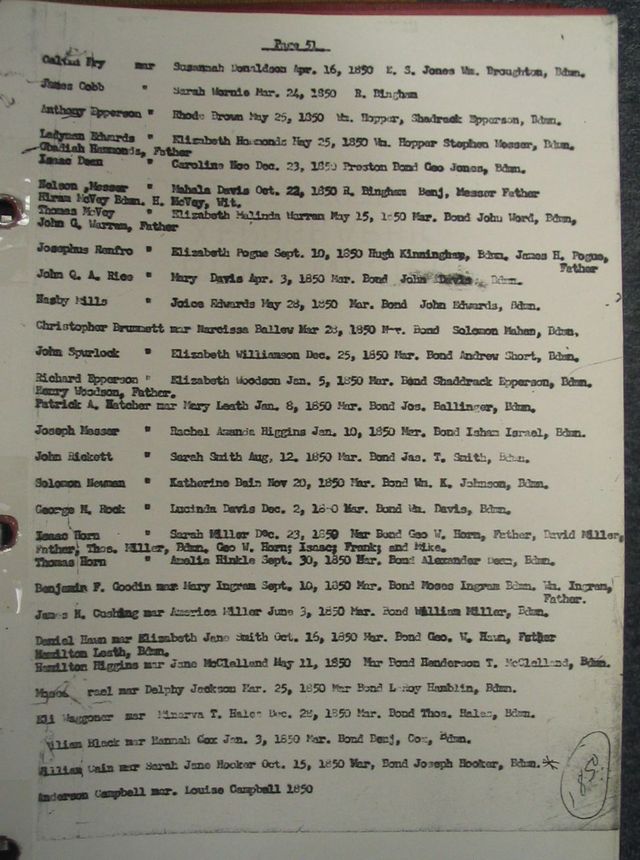 Page 51
Calvin Fry mar Susannah Donaldson Apr. 16, 1850 E. S. Jones Wm. Broughton, Bdmn.
James Cobb " Sarah Wornie Mar. 24, 1850 R. Bingham
Anthony Epperson " Rhode Brown May 25, 1850 Wm. Hopper, Shadrack Epperson, Bdmn.
Ladyman Edwards " Elizabeth Hammonds May 25, 1850 Wm. Hopper Stephen Messer, Bdmn.
Obadiah Hammonds, Father
Isaac Dean " Caroline Noe Dec. 23, 1850 Preston Bond Geo Jones, Bdmn.
Nelson Messer " Mahala Davis Oct. 22, 1850 R. Bingham Benj, Messer Father
Hiram McVey Bdmn. H. McVey, Wit.
Thomas McVey " Elizabeth Malinda Warren May 15, 1850 Mar. Bond John Word, Bdmn,
John G. Warren, Father
Josephus Renfro " Elizabeth Pogue Sept. 10, 1850 Hugh Kinningham, Bdmn. James H. Pogue,
Father
John Q. A. Rice " Mary Davis Apr. 3, 1850 Mar. Bond John Davis, Bdmn.
Nasby Mills " Joice Edwards May 28, 1850 Mar. Bond John Edwards, Bdmn.
Christopher Brummett mar Narcissa Ballew Mar 28, 1850 Mar. Bond Solomon Mahan, Bdmn.
John Spurlock " Elizabeth Williamson Dec. 25, 1850 Mar. Bond Andrew Short, Bdmn.
Richard Epperson " Elizabeth Woodson Jan. 5, 1850 Mar. Bond Shaddrack Epperson, Bdmn.
Henry Woodson, Father.
Patrick A. Hatcher mar Mary Leath Jan. 8, 1850 Mar. Bond Jos. Ballinger, Bdmn.
Joseph Messer " Rachel Amanda Higgins Jan. 10, 1850 Mar. Bond Isham Israel, Bdmn.
John Rickett " Sarah Smith Aug, 12. 1850 Mar. Bond Jas. T. Smith, Bdmn.
Solomon Newman " Katherine Bain Nov 20, 1850 Mar. Bond Wm. K. Johnson, Bdmn.
George N. Rock " Lucinda Davis Dec. 2, 18-0 Mar. Bond Wm. Davis, Bdmn.
Isaac Horn " Sarah Miller Dec. 23, 1850 Mar Bond Geo W. Horn, Father, David Miller,
Father; Thos. Miller, Bdmn. Geo W. Horn; Isaac; Frank; and Mike.
Thomas Horn " Amelia Hinkle Sept. 30, 1850 Mar. Bond Alexander Dean, Bdmn.
Benjamin F. Goodin mar Mary Ingram Sept. 10, 1850 Mar. Bond Moses Ingram Bdmn. Wm. Ingram,
Father.
James H. Cushing mar America Miller June 3, 1850 Mar. Bond William Miller, Bdmn.
Daniel Haun mar Elizabeth Jane Smith Oct. 16, 1850 Mar. Bond Geo. W. Haun, Father
Hamilton Leath, Bdmn.
Hamilton Higgins mar Jane McClelland May 11, 1850 Mar Bond Henderson T. McClelland, Bdmn.
rael mar Delphy Jackson Mar. 25, 1850 Mar Bond LeRoy Hamblin, Bdmn.
Eli Waggoner mar Minerva T. Hales Dec. 28, 1850 Mar. Bond Thos. Hales, Bdmn.
illiam Black mar Hannah Cox Jan. 3, 1850 Mar. Bond Benj, Cox, Bdmn.
William Cain mar Sarah Jane Hooker Oct. 15, 1850 Mar, Bond Joseph Hooker, Bdmn.*
Anderson Campbell mar. Louise Campbell 1850